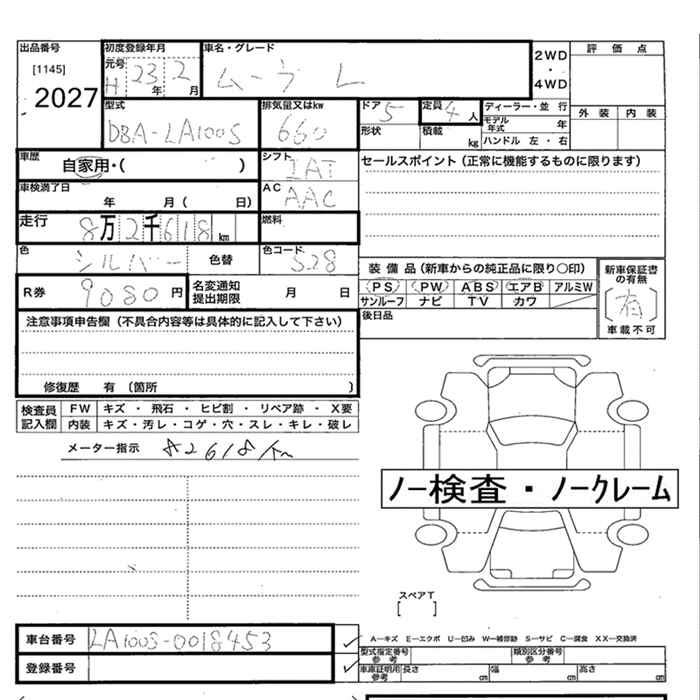 出品番号 初度登録年月 車名・グレード 評価点
[1145] 元号 H 23年 2月 ムーヴ L 2WD・4WD
2027 外装 内装
型式 排気量又はkw ドア 5 定員 4人 ディーラー・並行
DBA-LA100S 660 形状 積載 kg モデル年式 年
ハンドル 左・右
車歴 自家用・( ) シフト IAT セールスポイント (正常に機能するものに限ります)
車検満了日 年 月( 日) AC AAC
走行 8万2千618km 燃料
色 シルバー 色替 色コード S28
装備品(新車からの純正品に限り〇印) 新車保証書の有無
R券 9080円 名変通知提出期限 月 日 PS PW ABS エアB アルミW [有]
サンルーフ ナビ TV カワ 車載不可
注意事項申告欄 (不具合内容等は具体的に記入して下さい) 後日品
修復歴 有 (箇所 )
検査員記入欄 FW キズ・飛石・ヒビ割・リペア跡・X要
内装 キズ・汚レ・コゲ・穴・スレ・キレ・破レ
メーター指示 82618km
ノー検査・ノークレーム
スペアT
[ ]
車台番号 LA100S-0018453 A―キズ E―エクボ U―凹み W―補修跡 S―サビ C―腐食 XX―交換済
型式指定番号 参考 類別区分番号 参考
登録番号 車庫証明用 参考 長さ cm 幅 cm 高さ cm